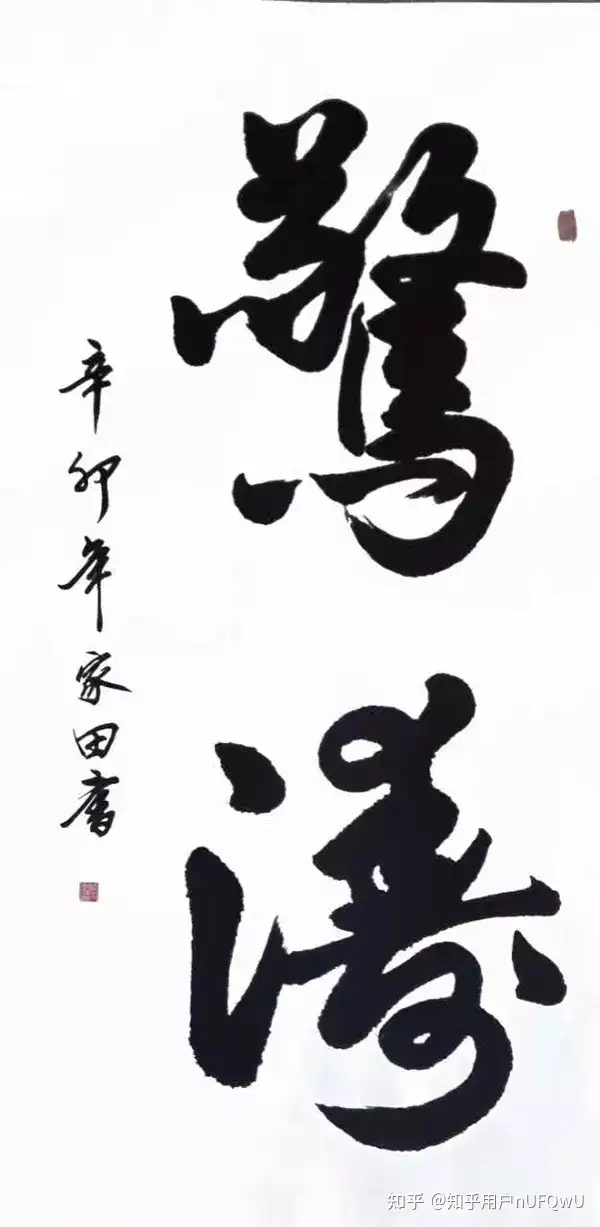 驚濤
辛卯年家田書
知乎 @知乎用户nUFQwU